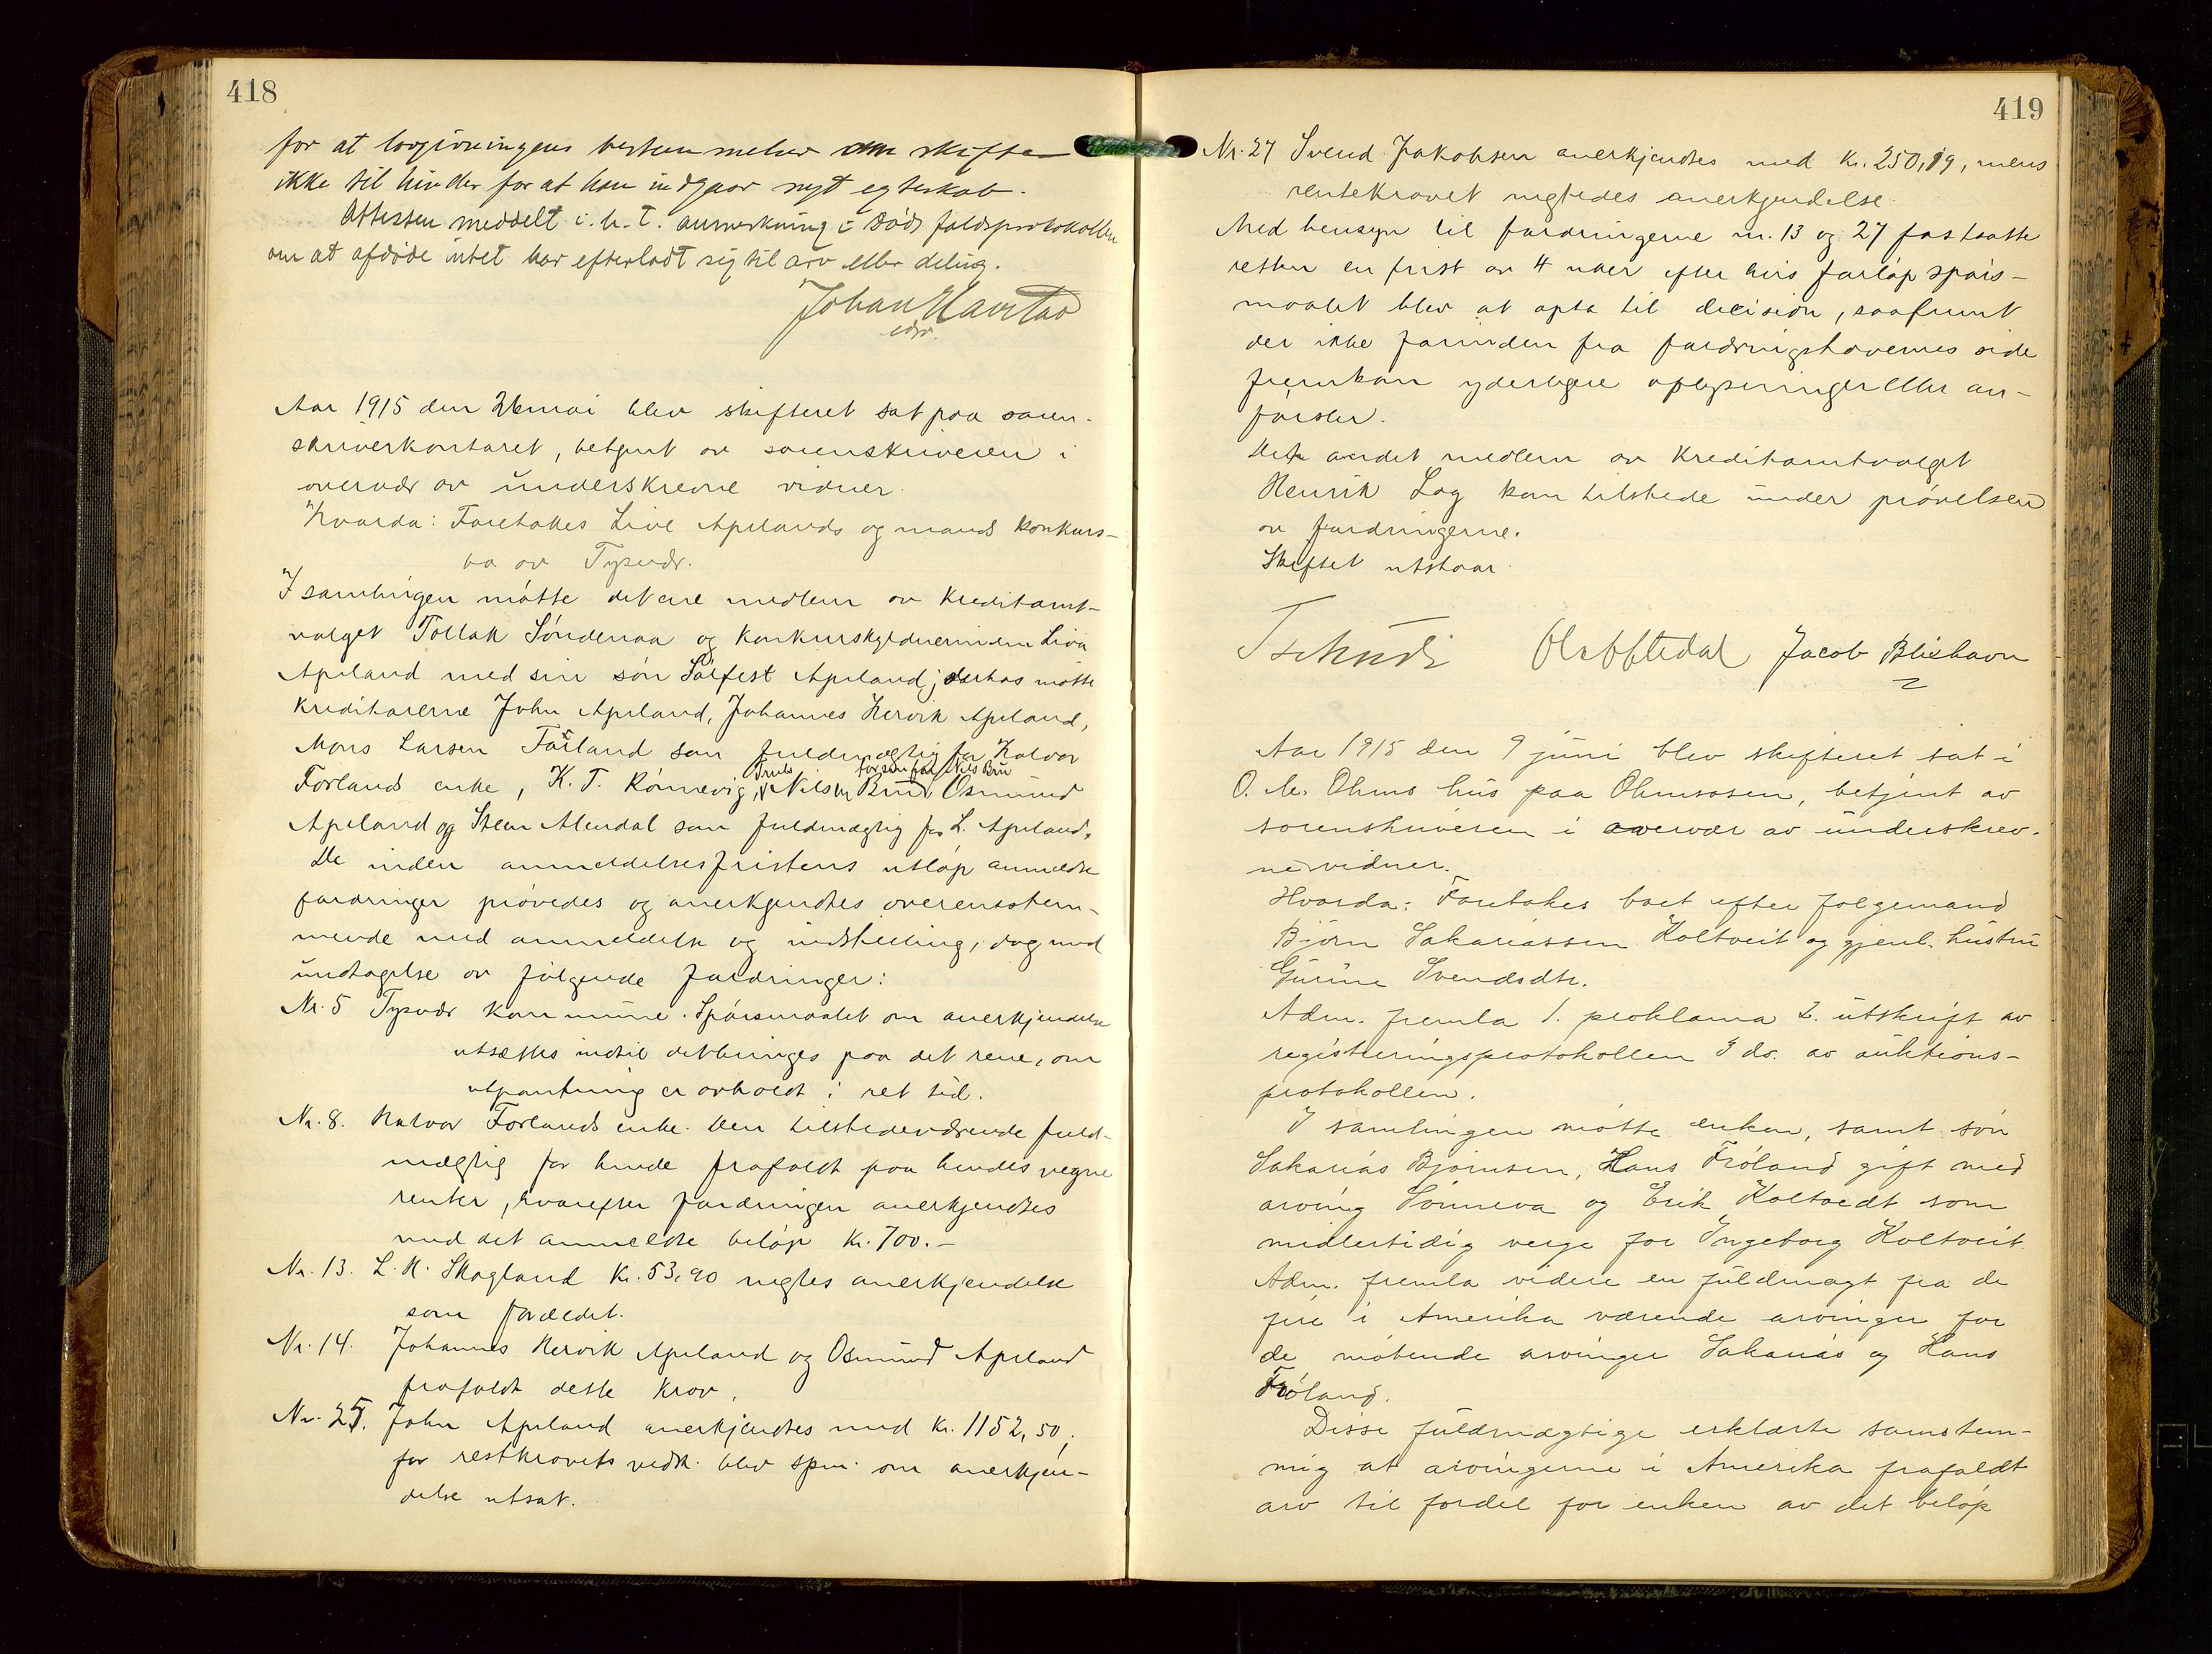 418
for at lovgivningens bestemmelser om skifte
ikke til hinder for at han indgaar nyt egteskab.
Attesten meddelt i. h. t. anmerkning i dødsfaldsprotokollen
om at afdøde intet har efterladt sig til arv eller deling.
Johan
edsv.
Aar 1915 den 26 mai blev skifteret sat paa soren-
skriverkontoret, betjent av sorenskriveren i
overvær av underskrevne vidner.
Hvorda: Foretokes Live Apelands og mands konkurs-
bo av Tysvær.
I samlingen møtte det ene medlem av kreditorut-
valget Tollak Søndenaa og konkursskyldnerinden Liva
Apeland med sin søn Salfest Apeland; derhos møtte
kreditorerne John Apeland, Johannes Hervik Apeland,
Mons Larsen Førland som fuldmægtig for Halvor
Truls for sin far Nils Bru
Førlands enke, K. T. Rønnevig, Nilsen Bru, Osmund
Apeland og Sten Alendal som fuldmægtig for L. Apeland.
De inden anmeldelsesfristens utløp anmeldte
fordringer prøvedes og anerkjendtes overensstem-
mende med anmeldelse og indstilling, dog med
undtagelse av følgende fordringer:
Nr. 5 Tysvær kommune. Spørsmaalet om anerkjendelse
utsættes indtil det bringes paa det rene, om
utpantning er avholdt i ret tid.
Nr. 8. Halvor Førlands enke. Den tilstedeværende fuld-
mægtig for hende frafaldt paa hendes vegne
renter, hvorefter fordringen anerkjendtes
med det anmeldte beløp kr. 700.-
Nr. 13. L. H. Skogland kr. 53,90 negtes anerkjendelse
som forældet.
Nr. 14. Johannes Hervik Apeland og Osmund Apeland
frafaldt dette krav.
Nr. 25. John Apeland anerkjendtes med kr. 1152,50;
for restkravets vedk. blev spm. om anerkjen-
delse utsat.
419
Nr. 27 Svend Jakobsen anerkjendtes med kr. 250,19, mens
rentekravet negtedes anerkjendelse.
Med hensyn til fordringerne nr. 13 og 27 fastsatte
retten en frist av 4 uker efter hvis forløp spørs-
maalet blev at opta til decision, saafremt
der ikke forinden fra fordringshavernes side
fremkom yderligere oplysninger eller an-
førsler.
Det andet medlem av kreditorutvalget
Henrik Lag kom tilstede under prøvelsen
av fordringerne.
Skiftet utstaar.
Tschudi Jacob Blixhavn
Aar 1915 den 9 juni blev skifteret sat i
O. M. Ohms hus paa Ohmsosen, betjent av
sorenskriveren i overvær av underskrev-
ne vidner.
Hvorda: Foretokes boet efter følgemand
Bjørn Sakariassen Koltveit og gjenl. hustru
Gurine Svendsdtr.
Adm. fremla 1. proklama 2. utskrift av
registreringsprotokollen 3 do. av auktions-
protokollen.
I samlingen møtte enken, samt søn
Sakarias Bjørnsen, Hans Frøland gift med
arving Sønneva og Erik Koltvedt som
midlertidig verge for Ingeborg Koltveit.
Adm. fremla videre en fuldmagt fra de
fire i Amerika værende arvinger for
de møtende arvinger Sakarias og Hans
Frøland.
Disse fuldmægtige erklærte samstem-
mig at arvingerne i Amerika frafaldt
arv til fordel for enken av det beløp